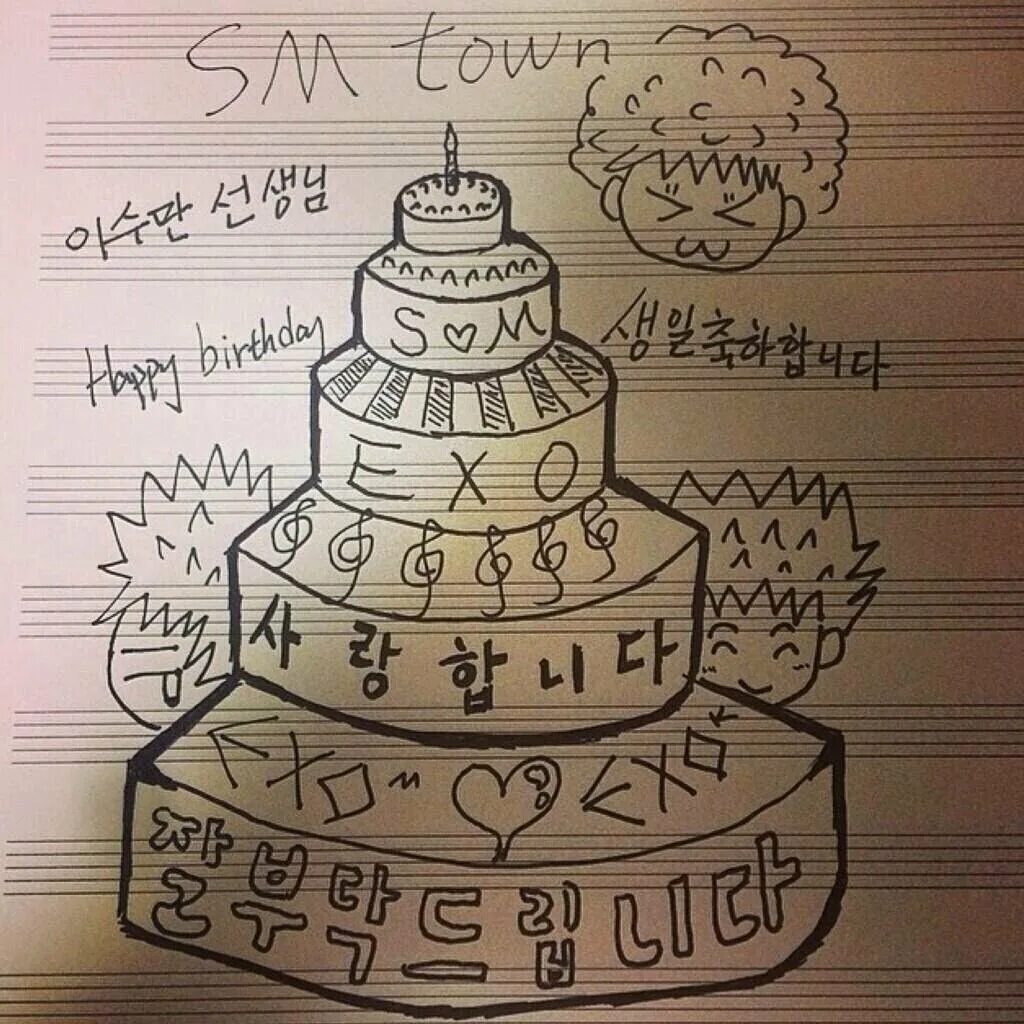 SM town
이수만 선생님
Happy birthday
생일축하합니다
S♡M
EXO
사랑합니다
EXO ♡ EXO
잘부탁드립니다